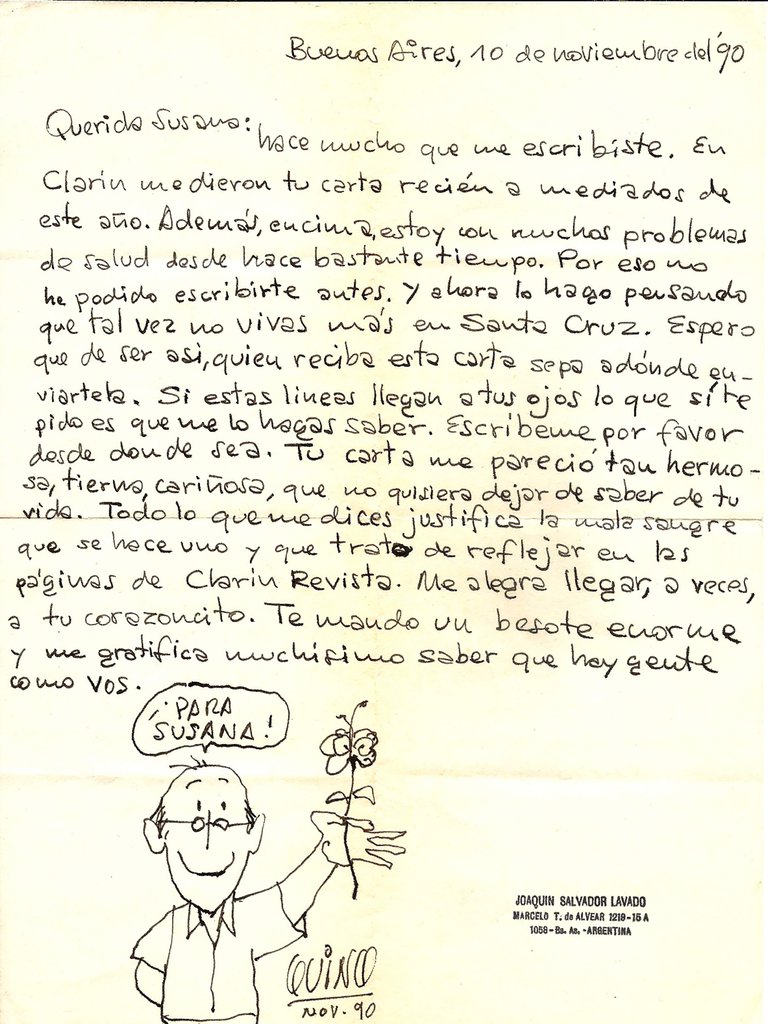 Buenos Aires, 10 de noviembre del '90
Querida Susana:
hace mucho que me escribiste. En
Clarín me dieron tu carta recién a mediados de
este año. Además, encima, estoy con muchos problemas
de salud desde hace bastante tiempo. Por eso no
he podido escribirte antes. Y ahora lo hago pensando
que tal vez no vivas más en Santa Cruz. Espero
que de ser así, quien reciba esta carta sepa adónde en-
viartela. Si estas líneas llegan a tus ojos lo que sí te
pido es que me lo hagas saber. Escríbeme por favor
desde donde sea. Tu carta me pareció tan hermo-
sa, tierna, cariñosa, que no quisiera dejar de saber de tu
vida. Todo lo que me dices justifica la mala sangre
que se hace uno y que trato de reflejar en las
páginas de Clarín Revista. Me alegra llegar, a veces,
a tu corazoncito. Te mando un besote enorme
y me gratifica muchísimo saber que hay gente
como vos.
¡PARA
SUSANA!
QUINO
NOV. 90
JOAQUIN SALVADOR LAVADO
MARCELO T. de ALVEAR 1219-15 A
1058-Bs. As. -ARGENTINA